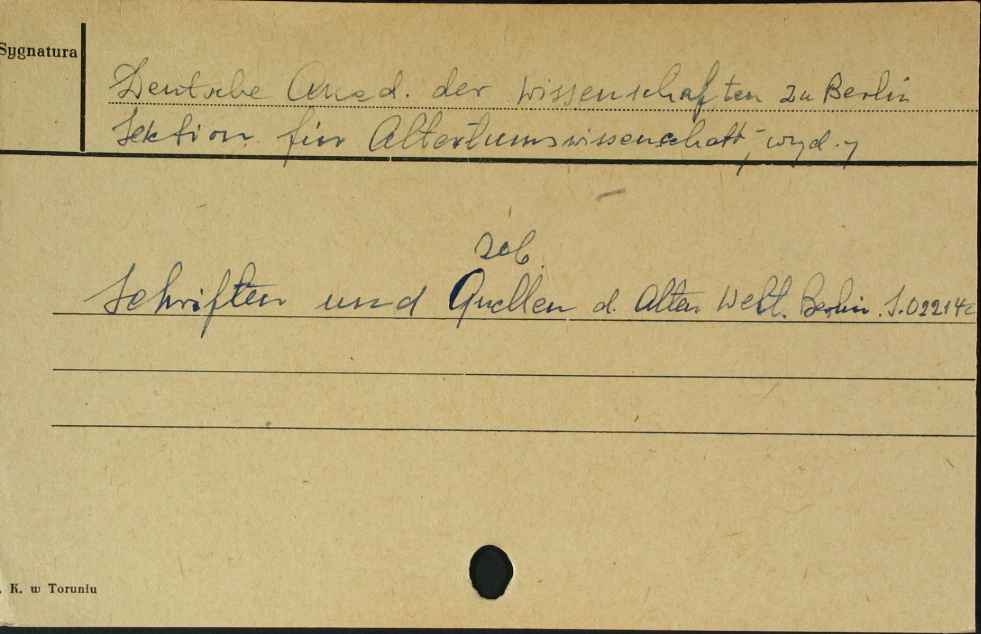 Sygnatura
Deutsche Akad. der Wissenschaften zu Berlin
Sektion für Altertumswissenschaft, wyd.
zob.
Schriften und Quellen d. Alten Welt. Berlin. S.02214
. K. w Toruniu